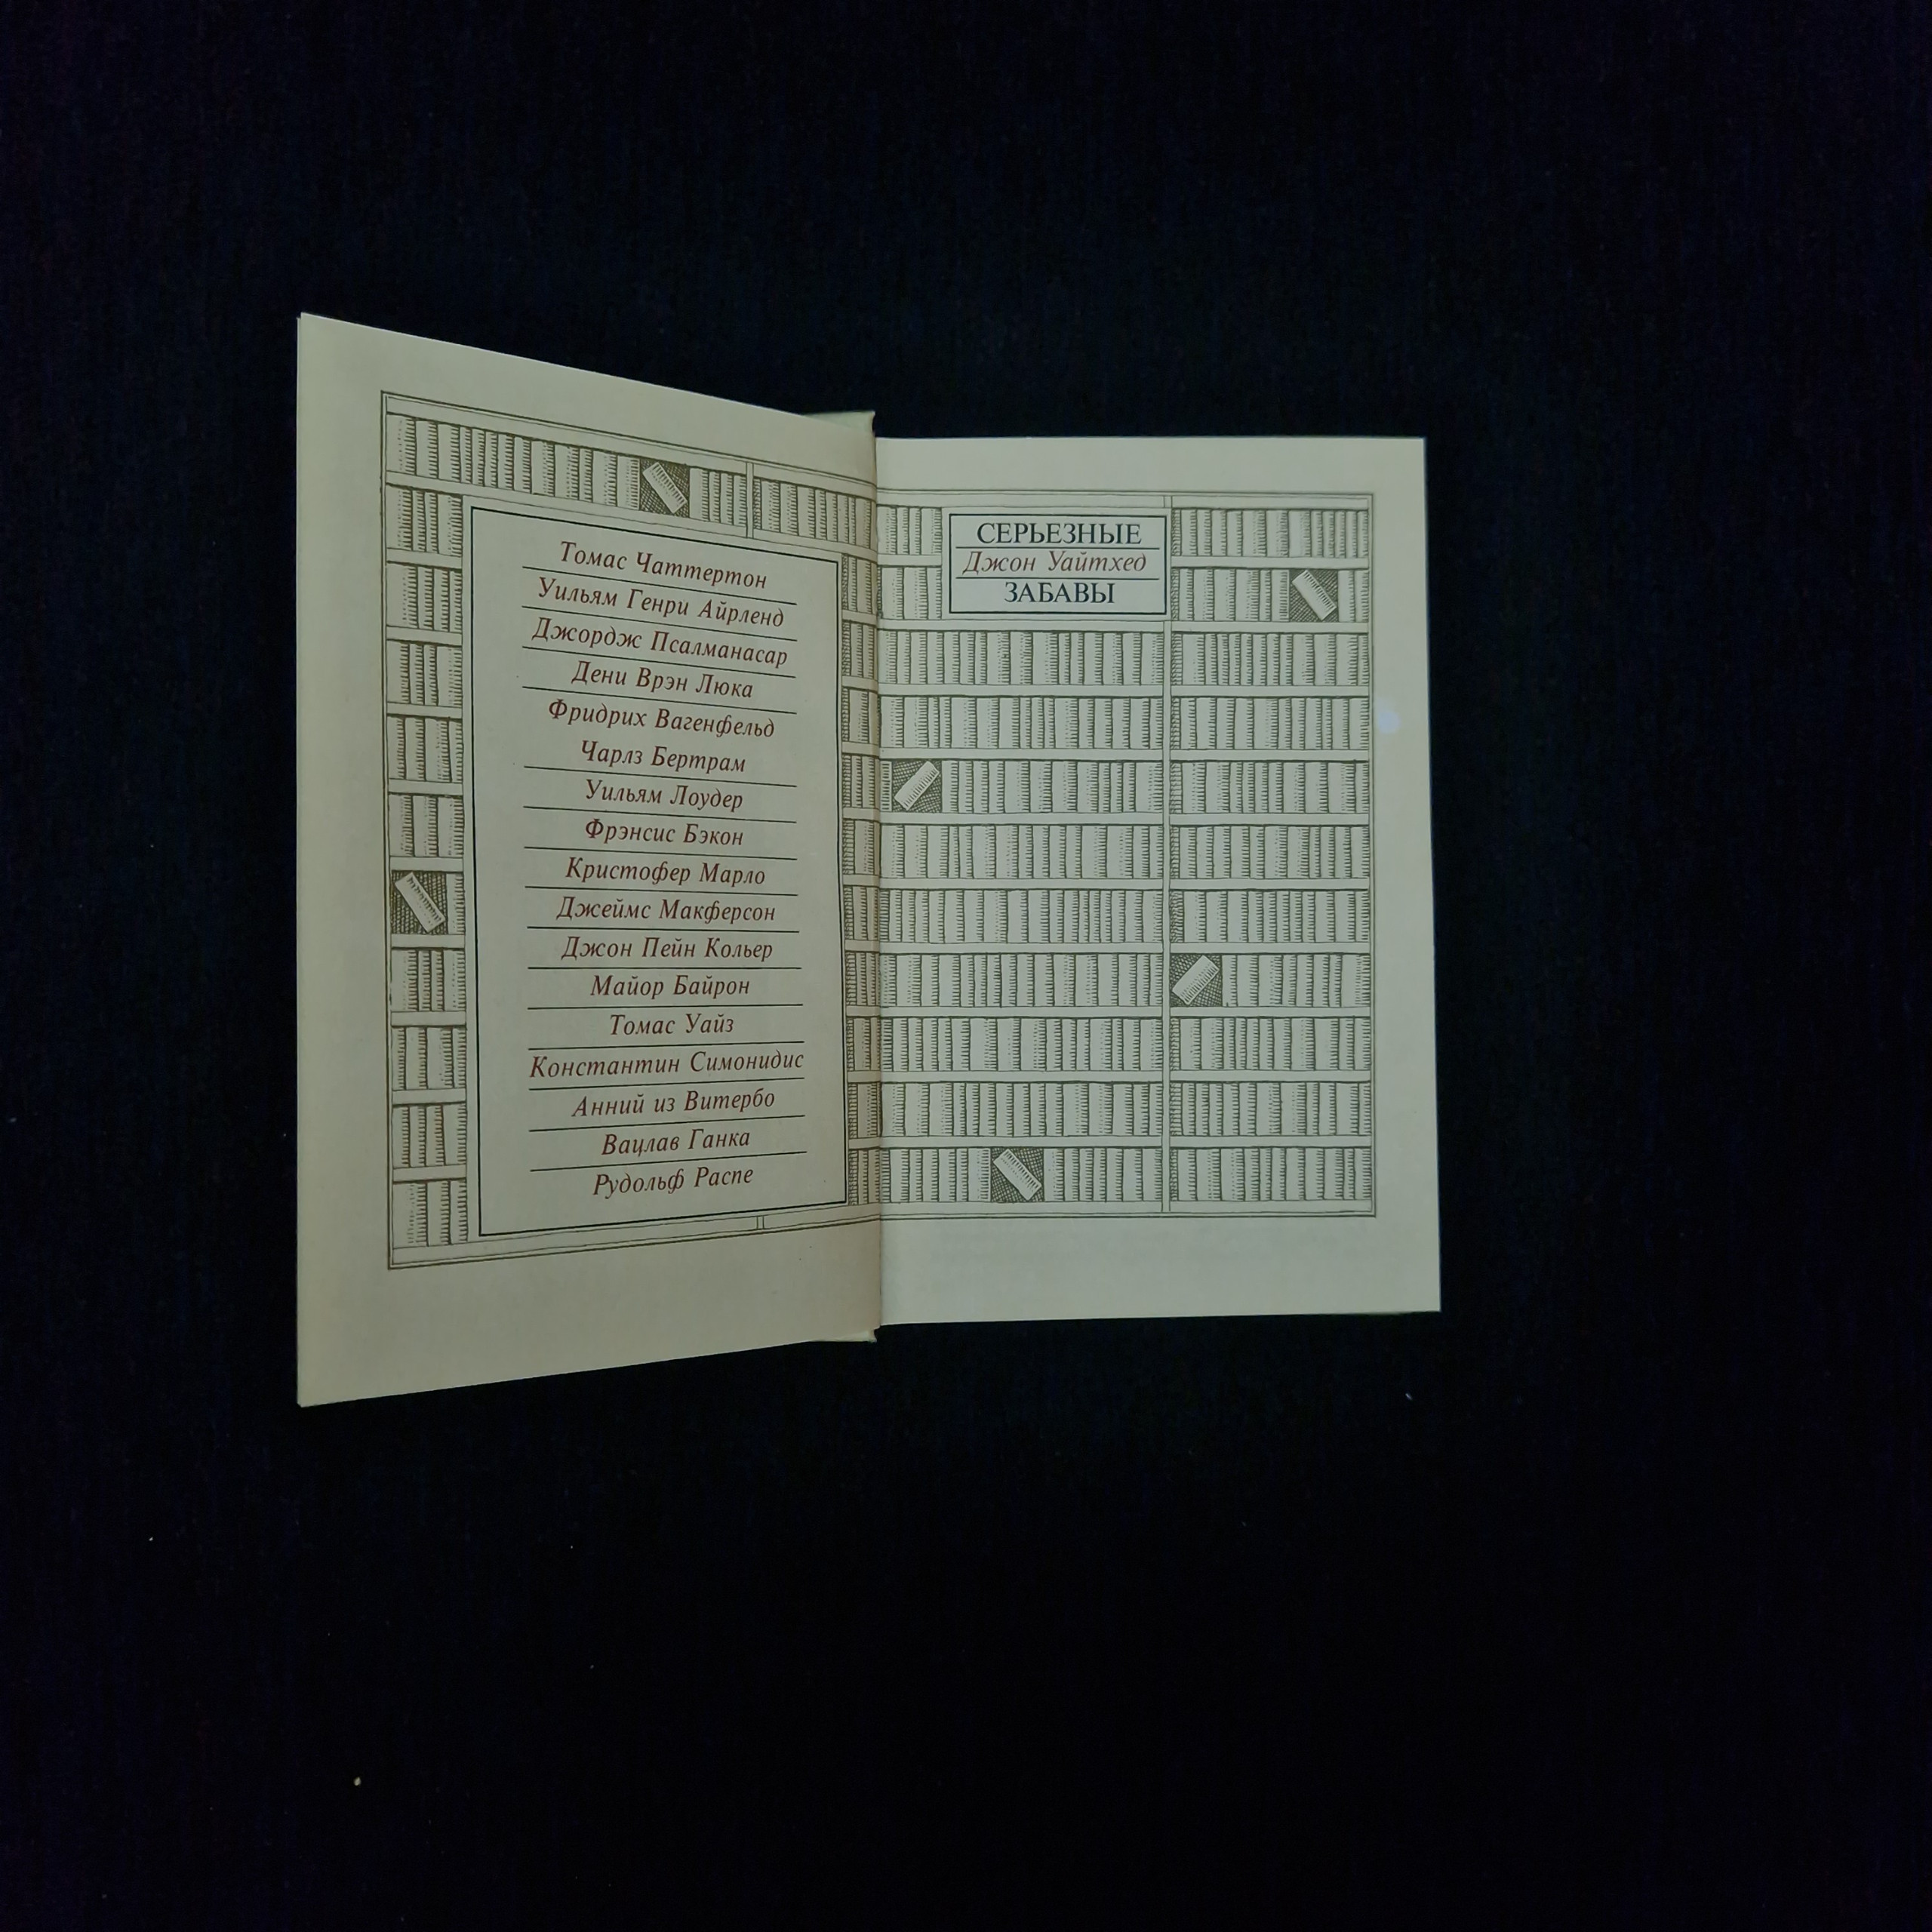 Томас Чаттертон
Уильям Генри Айрленд
Джордж Псалманасар
Дени Врэн Люка
Фридрих Вагенфельд
Чарлз Бертрам
Уильям Лоудер
Фрэнсис Бэкон
Кристофер Марло
Джеймс Макферсон
Джон Пейн Кольер
Майор Байрон
Томас Уайз
Константин Симонидис
Анний из Витербо
Вацлав Ганка
Рудольф Распе
СЕРЬЕЗНЫЕ
Джон Уайтхед
ЗАБАВЫ